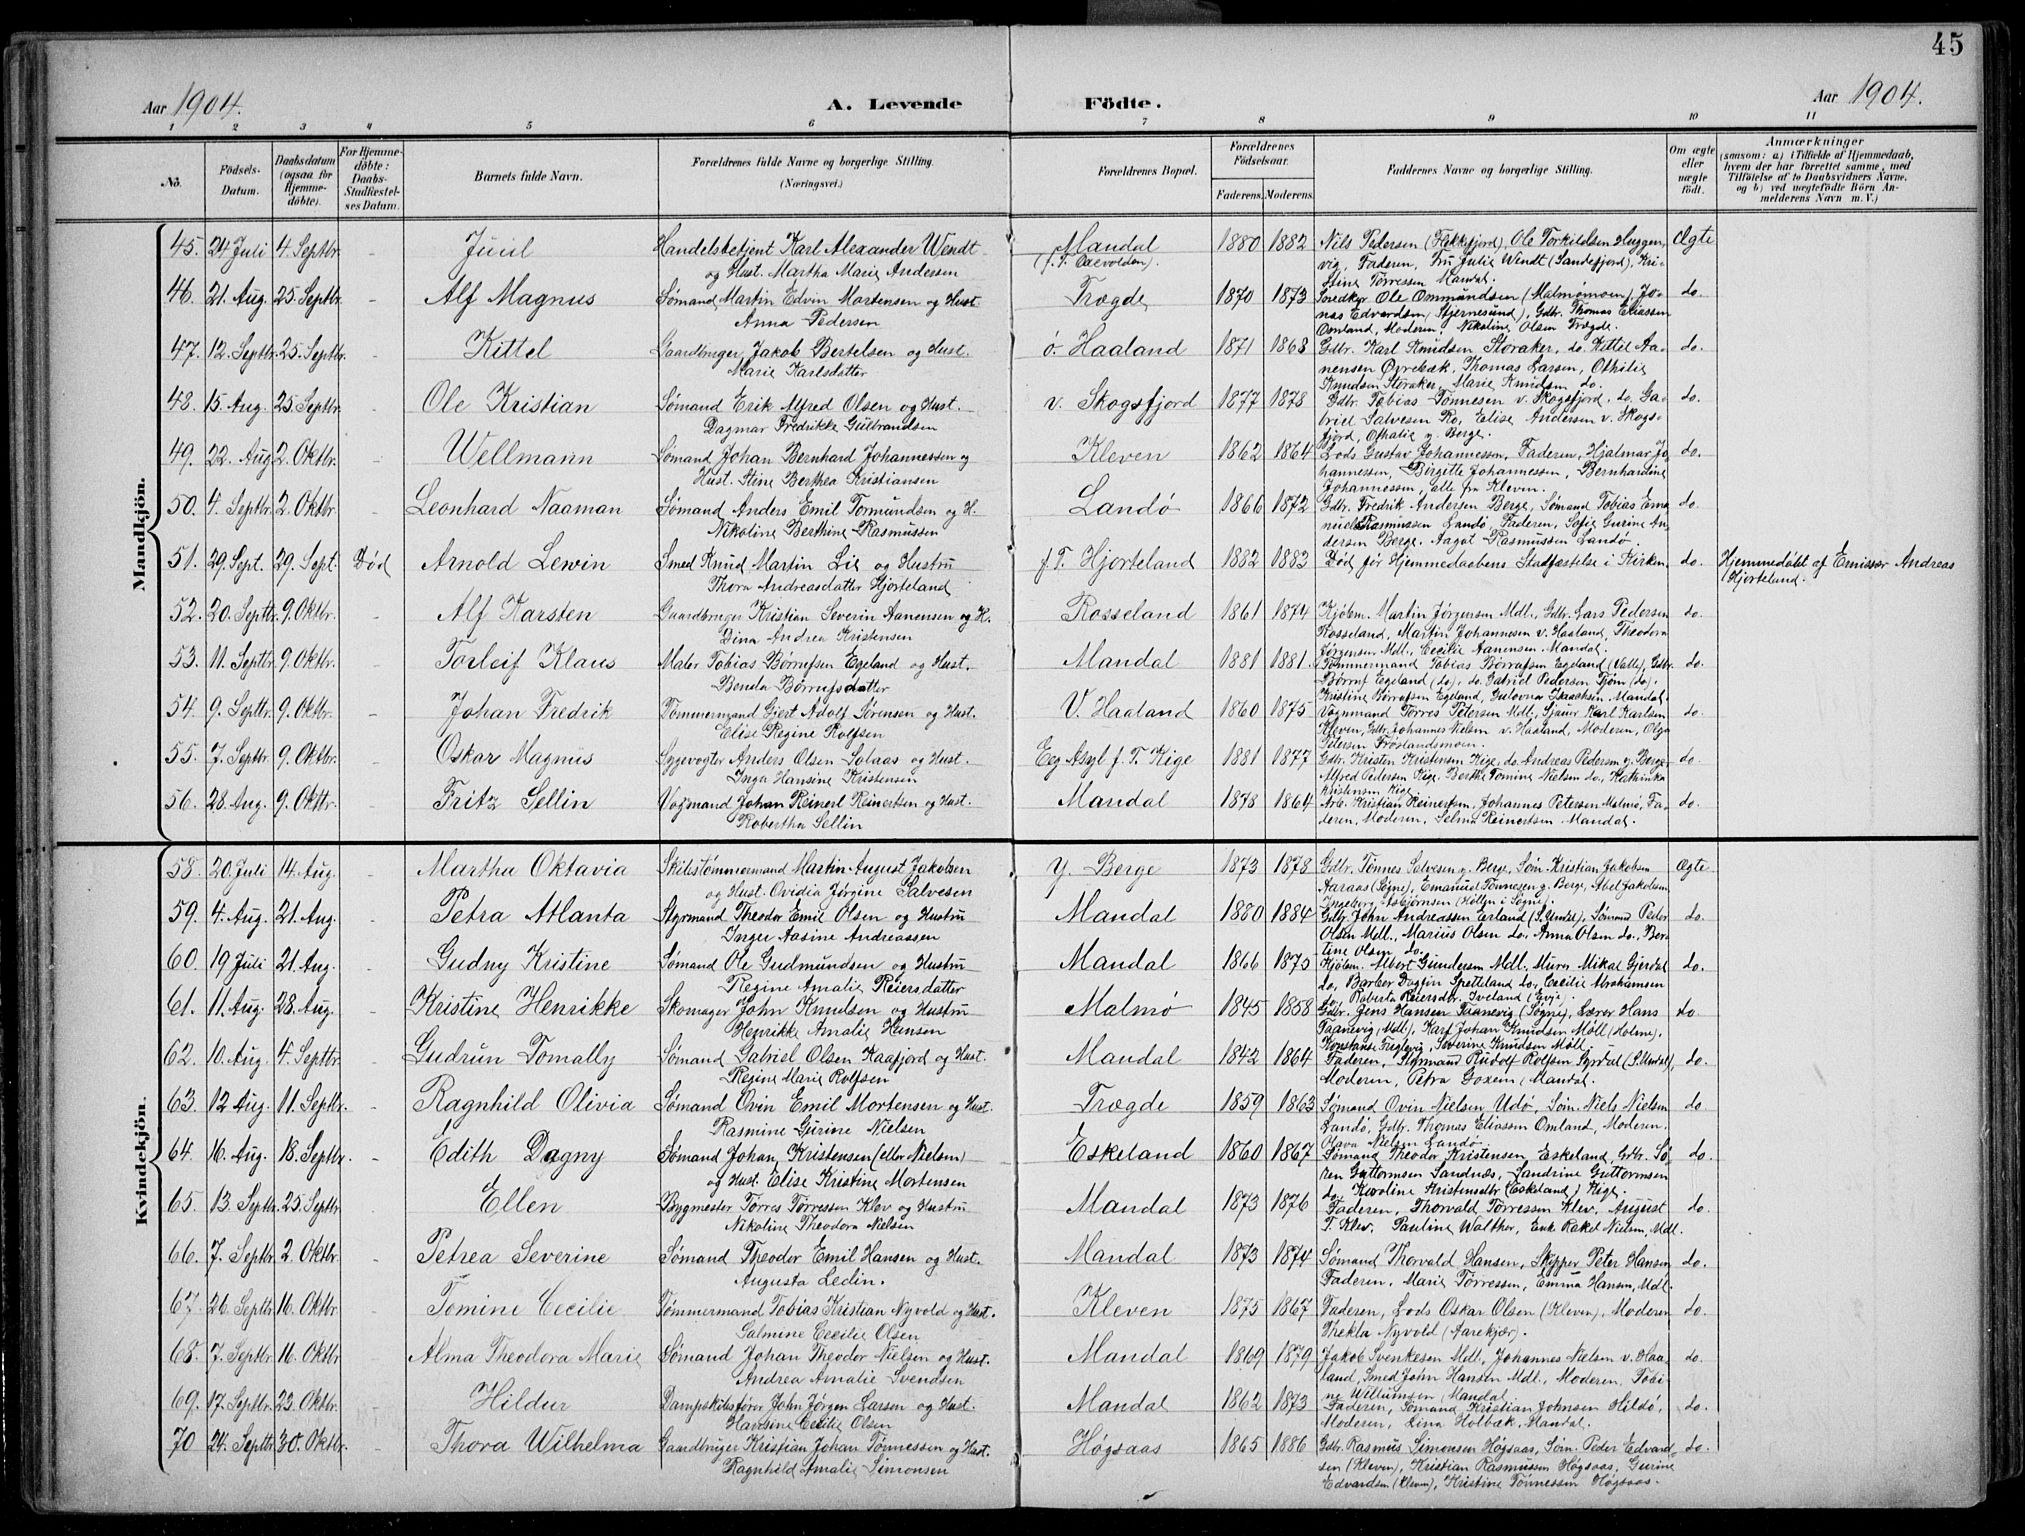 45
Aar 1904. A. Levende Födte. Aar 1904.
1 2 3 4 5 6 7 8 9 10 11
No. Födsels-Datum. Daabsdatum (ogsaa for Hjemme-döbte). For Hjemme-döbte: Daabs-Stadfæstel-ses Datum. Barnets fulde Navn. Forældrenes fulde Navne og borgerlige Stilling. (Næringsvei.) Forældrenes Bopæl. Forældrenes Födselsaar. Faderens. Moderens. Faddernes Navne og borgerlige Stilling. Om ægte eller uægte födt. Anmærkninger (saasom: a) i Tilfælde af Hjemmedaab, hvem der har forrettet samme, med Tilföielse af to Daabsvidners Navne, og b) ved uægtefödte Börn An-melderens Navn m. V.)
Mandkjön.
45. 24 Juli 4. Septbr. Juul Handelsbetjent Karl Alexander Wendt Mandal 1880 1882 Nils Pedersen (Flekkefjord), Ole Torkildsen Huggen Ægte
og Hust. Martha Marie Andersen (f. T. Oxevolden). vig, Faderen, Fru Julie Wendt (Sandefjord), Kri-
stine Tørressen Mandal.
46. 21. Aug. 25. Septbr. - Alf Magnus Sømand Martin Edvin Mortensen og Hust. Trægde 1870 1873 Ole Ommundsen (Malmømoen), Jo- do.
Anna Pedersen nas Edvardsen (Stjernesund), Gdbr. Thomas Eliassen
Omland, Moderen, Nikoline Olsen Trægde.
47. 12. Septbr. 25. Septbr. - Kittel Gaardbruger Jakob Bertelsen og Hust. ø. Haaland 1871 1868 Gdbr. Karl Knudsen Storaker, do. Kittel Aa- do.
Marie Karlsdatter nensen Øvrebæk, Thomas Larsen, Othilie
Knudsen Storaker, Marie Knudsen do.
48. 15. Aug. 25. Septbr. - Ole Kristian Sømand Erik Alfred Olsen og Hust. v. Skogsfjord 1877 1878 Gdbr. Tobias Tønnesen v. Skogsfjord, do. Ga- do.
Dagmar Fredrikke Gulbrandsen briel Salvesen Ro, Elise Andersen v. Skogs-
fjord, Othalie y. Berge.
49. 22. Aug. 2. Oktbr. - Wellmann Sømand Johan Bernhard Johannessen og Kleven 1862 1864 Lods Gustav Johannessen, Faderen, Hjalmar Jo- do.
Hust. Stine Berthea Kristiansen hannessen, Birgitte Johannessen, Bernhardine
Johannessen, alle fra Kleven.
50. 4. Septbr. 2. Oktbr. - Leonhard Naaman Sømand Anders Emil Tormundsen og H. Landø 1866 1872 Gdbr. Fredrik Andersen Berge, Sømand Tobias Ema- do.
Nikoline Berthine Rasmussen nuel Rasmussen Landø, Faderen, Sofie Gurine An-
dersen Berge, Aagot Rasmussen Landø.
51. 29. Sept. 29. Sept. Død Arnold Lewin Smed Knud Martin Lie og Hustru f. T. Hjorteland 1882 1883 Død før Hjemmedaabens Stadfæstelse i Kirken. do. Hjemmedøbt af Emissær Andreas
Thora Andreasdatter Hjorteland Hjorteland.
52. 20. Septbr. 9. Oktbr. - Alf Karsten Gaardbruger Kristian Severin Aanensen og H. Rosseland 1861 1874 Kjøbm. Martin Jørgensen Mdl., Gdbr. Lars Pedersen do.
Dina Andrea Kristensen Rosseland, Martin Johannesen v. Haaland, Theodora
Jørgensen Mdl., Cecilie Aanensen Mandal.
53. 11. Septbr. 9. Oktbr. - Torleif Klaus Maler Tobias Børrufsen Egeland og Hust. Mandal 1881 1881 Tømmermand Tobias Børrufsen Egeland (Valle), Gdbr. do.
Benda Børrufsdatter Børruf Egeland (do), do. Gabriel Pedersen Tjøm (do),
Kristine Børrufsen Egeland, Gulovna Isaachsen Mandal.
54. 9. Septbr. 9. Oktbr. - Johan Fredrik Tømmermand Gjert Adolf Sørensen og Hust. V. Haaland 1860 1875 Vognmand Tørres Petersen Mdl., Karl Karlsen do.
Elise Regine Rolfsen Kleven, Gdbr. Johannes Nielsen v. Haaland, Moderen, Olga
Petersen Frøslandsmoen.
55. 7. Septbr. 9. Oktbr. - Oskar Magnus Sygevogter Anders Olsen Solaas og Hust. Eeg Asyl f. T. Kige 1881 1877 Gdbr. Kristen Kristensen Kige, do. Andreas Pedersen y. Berge, do.
Inga Hansine Kristensen Alfred Pedersen Kige, Berthe Tomine Nielsen do, Kathinka
Kristensen Kige
56. 28. Aug. 9. Oktbr. - Fritz Sellin Vognmand Johan Reinert Reinertsen og Hust. Mandal 1878 1864 Arb. Kristian Reinertsen, Johannes Petersen Malmø, Fa- do.
Robertha Sellin deren, Moderen, Selma Reinertsen Mandal.
Kvindekjön.
58. 20. Juli 14. Aug. Martha Oktavia Skibstømmermand Martin August Jakobsen y. Berge 1873 1878 Gdbr. Tønnes Salvesen y. Berge, Søm. Kristian Jakobsen Ægte
og Hust. Ovidia Jørgine Salvesen Aaraas (Søgne), Emanuel Tønnesen y. Berge, Abel Jakobsen,
Ingeborg Asbjørnsen (Høllen i Søgne).
59. 4. Aug. 21. Aug. - Petra Atlanta Styrmand Theodor Emil Olsen og Hustru Mandal 1880 1884 Gdbr. John Andreassen Erland (S. Undal), Sømand Peder do.
Inger Aasine Andreassen Olsen Mdl., Marius Olsen do., Anna Olsen do., Ber-
tine Olsen do.
60. 19. Juli 21. Aug. - Gudny Kristine Sømand Ole Gudmundsen og Hustru Mandal 1866 1875 Kjøbm. Albert Gundersen Mdl., Mikal Gjerdal do.
Regine Amalie Reiersdatter do, Barber Dagfin Spetteland do, Cecilie Abrahamsen
do, Roberta Reiersdtr. Iveland (Evje).
61. 11. Aug. 28. Aug. - Kristine Henrikke Skomager John Knudsen og Hustru Malmø 1845 1858 Gdbr. Jens Hansen Faanevig (Søgne), Lærer Hans do.
Henrikke Amalie Hansen Faanevig Mdl), Karl Johan Knudsen Møll (Holme),
Konstanse Fuglevig, Severine Knudsen Møll.
62. 10. Aug. 4. Septbr. - Gudrun Tomally Sømand Gabriel Olsen Kaafjord og Hust. Mandal 1842 1864 Faderen, Styrmand Rudolf Rolfsen Syrdal (S. Undal), do.
Regine Marie Rolfsen Moderen, Petra Goxem (Mandal.
63. 12. Aug. 11. Septbr. - Ragnhild Olivia Sømand Ovin Emil Mortensen og Hust. Trægde 1859 1863 Sømand Ovin Nielsen Udø, Søm. Niels Nielsen do
Rasmine Gurine Nielsen Landø, Gdbr. Thomas Eliassen Omland, Moderen,
Olava Nielsen Landø.
64. 16. Aug. 18. Septbr. - Edith Dagny Sømand Johan Kristensen (eller Nielsen) Eskeland 1860 1867 Sømand Theodor Kristensen, Eskeland, Gdbr. Sø- do.
og Hust. Elise Kristine Mortensen ren Guttormsen Sandnæs, Sandrine Guttormsen
do, Karoline Kristensdtr (Eskeland) Kige.
65. 13. Septbr. 25. Septbr. - Ellen Bygmester Tørres Tørressen Klev og Hustru Mandal 1873 1876 Faderen, Thorvald Tørressen Klev, August do.
Nikoline Theodora Nielsen T. Klev, Pauline Walther, Enk. Rakel Nielsen, Mdl.
66. 7. Septbr. 2. Oktbr. - Petrea Severine Sømand Theodor Emil Hansen og Hust. Mandal 1873 1874 Sømand Thorvald Hansen, Skipper Peter Hansen do.
Augusta Ledin. Faderen, Marie Tørressen, Emma Hansen, Mdl.
67. 26. Septbr. 16. Oktbr. - Tomine Cecilie Tømmermand Tobias Kristian Nyvold og Hust. Kleven 1875 1867 Faderen, Lods Oskar Olsen (Kleven), Moderen do.
Salmine Cecilie Olsen Thekla Nyvold (Aarekjær).
68. 7. Septbr. 16. Oktbr. - Alma Theodora Marie Sømand Johan Theodor Nielsen og Hust. Mandal 1869 1879 Jakob Svenkesen Mdl., Johannes Nielsen v. Haa- do.
Andrea Amalie Svendsen land, Smed John Hansen Mdl., Moderen, Tobi-
ne Willumsen (Mandal.
69. 17. Septbr. 23. Oktbr. - Hildur Dampskibsfører John Jørgen Larsen og Hust. Mandal 1862 1873 Faderen, Sømand Kristian Johnsen Hildø, do.
Hansine Cecilie Olsen Moderen, Lina Holbæk, Mandal.
70 24. Septbr. 30. Oktbr. - Thora Wilhelma Gaardbruger Kristian Johan Tønnessen og Hust. Høgsaas 1865 1886 Gdbr. Rasmus Simonsen Høgsaas, Søm. Peder Edvard- do.
Ragnhild Amalie Simonsen sen (Kleven), Kristian Rasmussen Høgsaas, Gurine
Edvardsen (Kleven), Kristine Tønnessen Høgsaas.